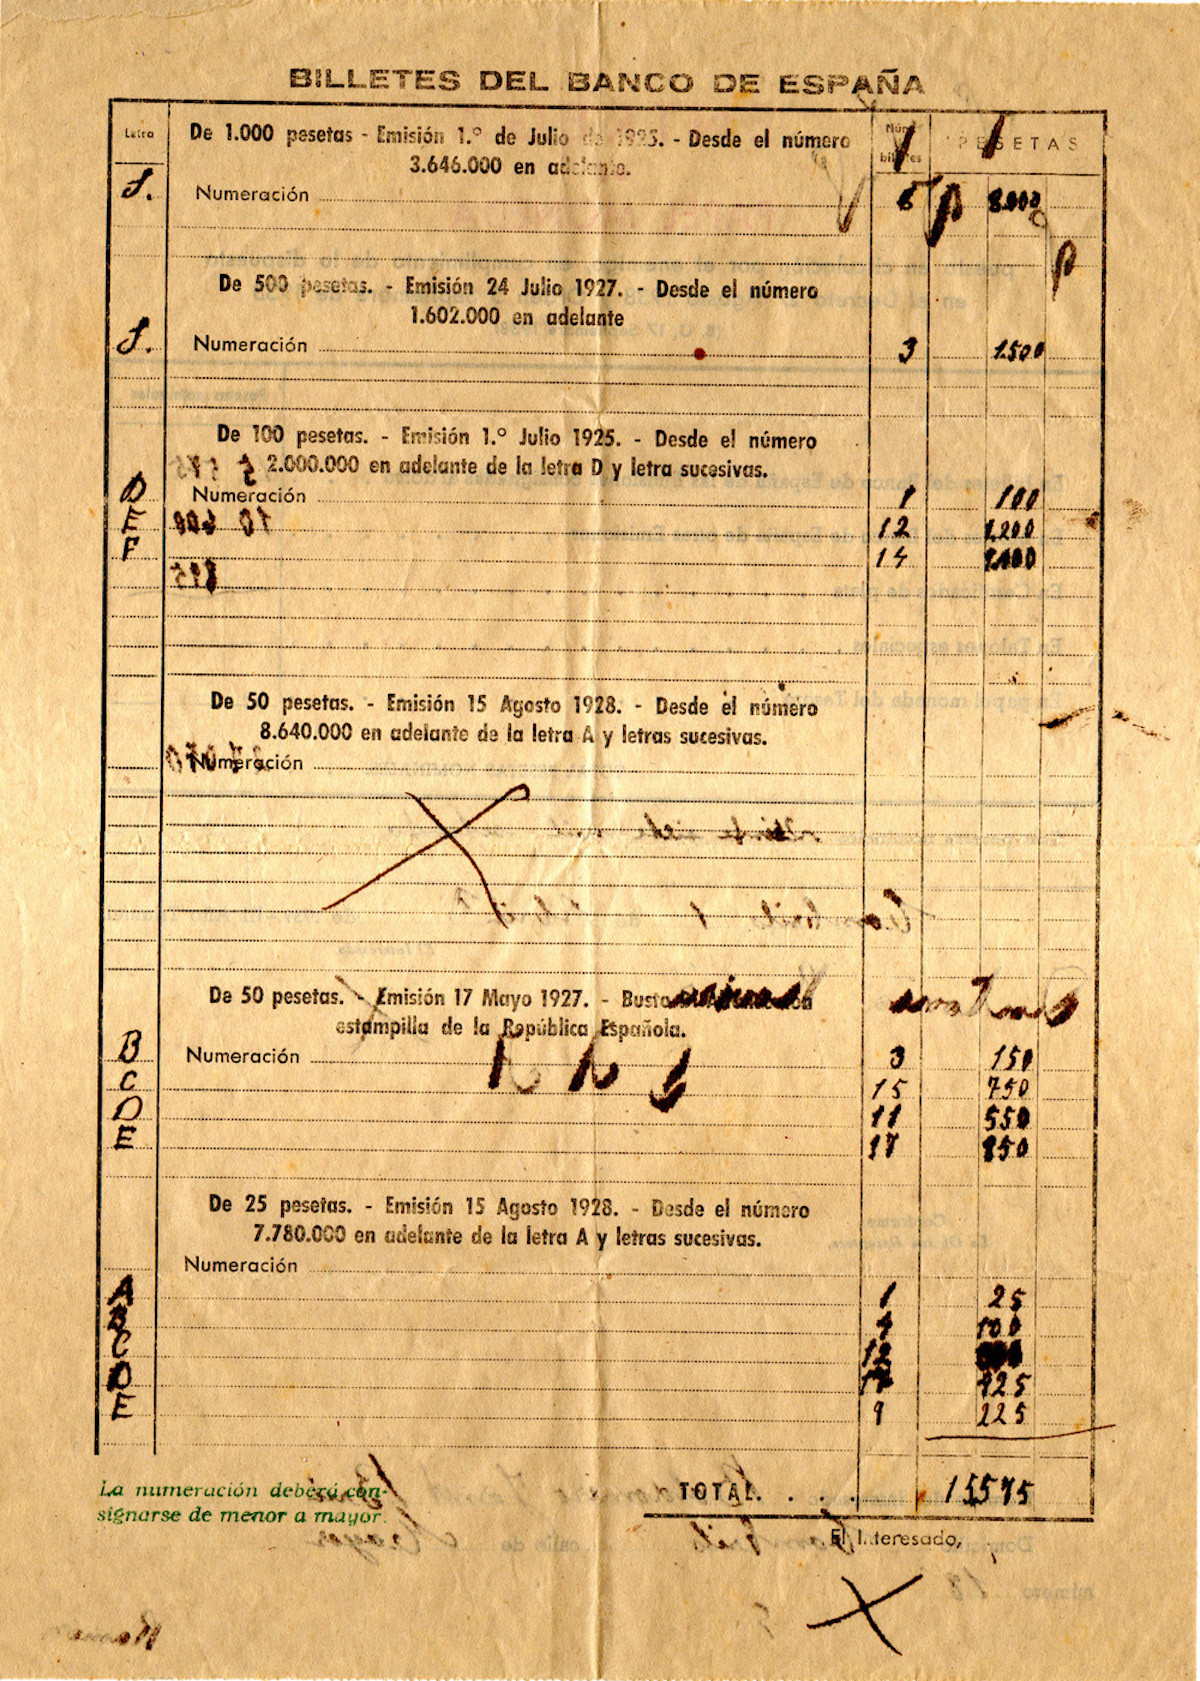 BILLETES DEL BANCO DE ESPAÑA
Letra
De 1.000 pesetas - Emisión 1.º de Julio de 1925. - Desde el número
3.646.000 en adelante.
Núm.
billetes
PESETAS
S.
Numeración
8.000
De 500 pesetas. - Emisión 24 Julio 1927. - Desde el número
1.602.000 en adelante
S. Numeración 3 1.500
De 100 pesetas. - Emisión 1.º Julio 1925. - Desde el número
2.000.000 en adelante de la letra D y letra sucesivas.
D Numeración 1 100
E 12 1.200
F 14
De 50 pesetas. - Emisión 15 Agosto 1928. - Desde el número
8.640.000 en adelante de la letra A y letras sucesivas.
Numeración
De 50 pesetas. - Emisión 17 Mayo 1927. - Busto
estampilla de la República Española.
B Numeración 3 150
C 15 750
D 11 550
E 17 850
De 25 pesetas. - Emisión 15 Agosto 1928. - Desde el número
7.780.000 en adelante de la letra A y letras sucesivas.
Numeración
A 1 25
B 4 100
C 12
D 17 425
E 9 225
La numeración deberá con-
signarse de menor a mayor.
TOTAL. . . . 15575
El Interesado,